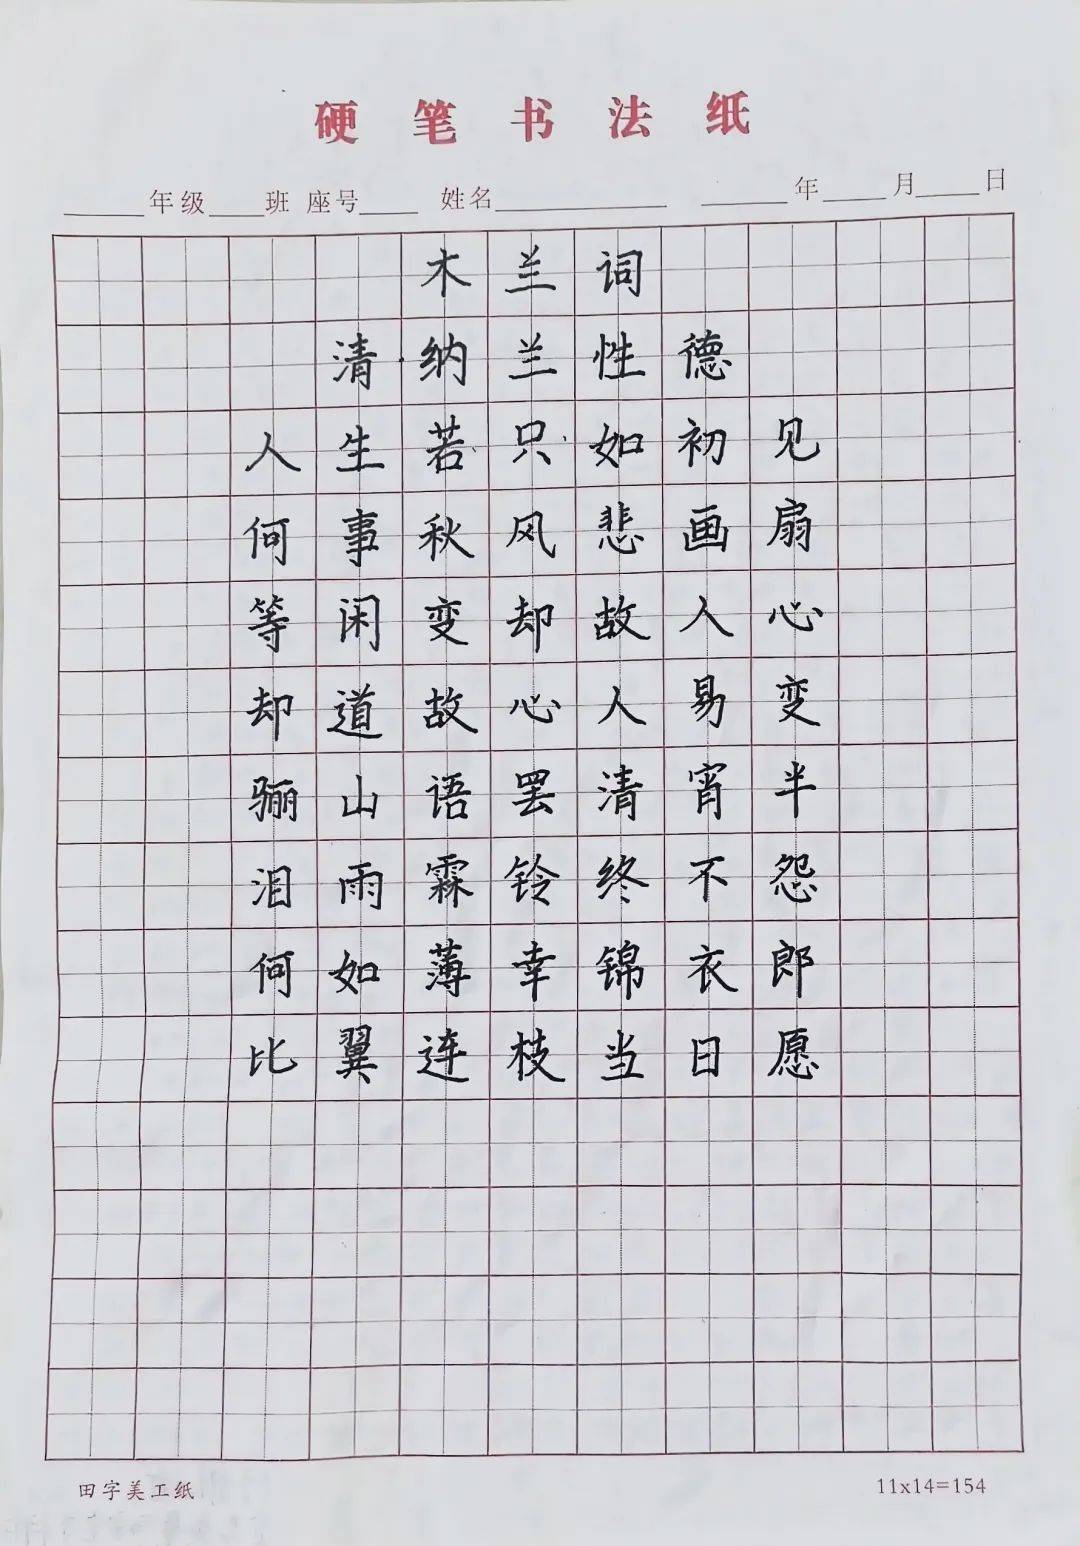 硬笔书法纸
年级 班 座号 姓名 年 月 日
木兰词
清·纳兰性德
人生若只如初见
何事秋风悲画扇
等闲变却故人心
却道故心人易变
骊山语罢清宵半
泪雨霖铃终不怨
何如薄幸锦衣郎
比翼连枝当日愿
田字美工纸 11x14=154